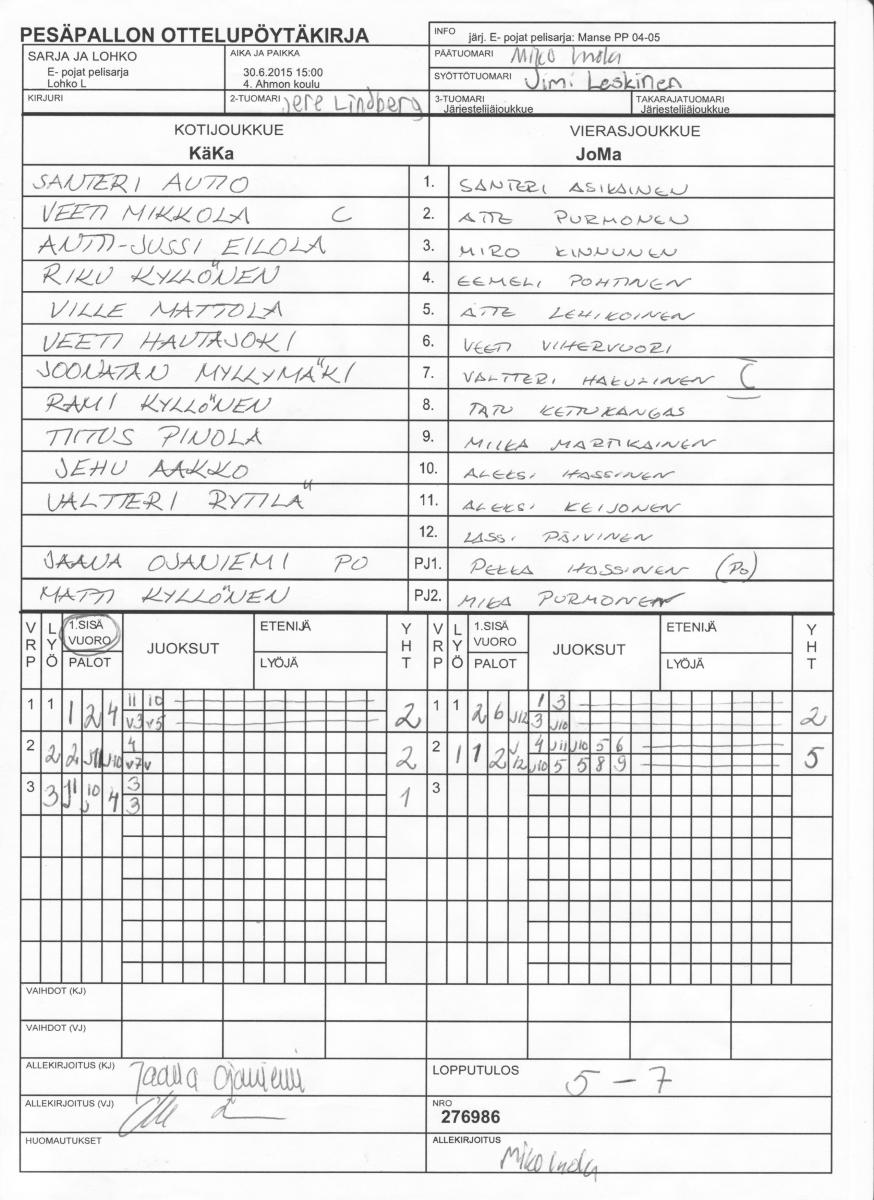 PESÄPALLON OTTELUPÖYTÄKIRJA
INFO järj. E- pojat pelisarja: Manse PP 04-05
SARJA JA LOHKO
E- pojat pelisarja
Lohko L
AIKA JA PAIKKA
30.6.2015 15:00
4. Ahmon koulu
PÄÄTUOMARI Miko
SYÖTTÖTUOMARI Jimi Leskinen
KIRJURI
2-TUOMARI Jere Lindberg
3-TUOMARI
Järjestelijäjoukkue
TAKARAJATUOMARI
Järjestelijäjoukkue
KOTIJOUKKUE
KäKa
VIERASJOUKKUE
JoMa
SANTERI AUTIO 1. SANTERI ASIKAINEN
VEETI MIKKOLA C 2. ATTE PURMONEN
ANTTI-JUSSI EILOLA 3. MIRO KINNUNEN
RIKU KYLLÖNEN 4. EEMELI POHTINEN
VILLE MATTOLA 5. ATTE LEHIKOINEN
VEETI HAUTAJOKI 6. VEETI VIHERVUORI
JOONATAN MYLLYMÄKI 7. VALTTERI HAKULINEN C
RAMI KYLLÖNEN 8. TATU KETTUKANGAS
TIITUS PINOLA 9. MIIKA MARTIKAINEN
JEHU AAKKO 10. ALEKSI HASSINEN
VALTTERI RYTILÄ 11. ALEKSI KEIJONEN
12. LASSI PÄIVINEN
JAANA OJANIEMI PO PJ1. PEKKA HASSINEN (PO)
MATTI KYLLÖNEN PJ2. MIKA PURMONEN
VRP LYÖ 1.SISÄ VUORO PALOT JUOKSUT ETENIJÄ LYÖJÄ YHT VRP LYÖ 1.SISÄ VUORO PALOT JUOKSUT ETENIJÄ LYÖJÄ YHT
1 1 1 2 4 11 10 2 1 1 2 6 J12 1 3 2
v3 v5 3 J10
2 2 2 J11 J10 4 2 2 1 1 2 J12 4 J11 J10 5 6 5
v7v J10 5 5 8 9
3 3 J11 J10 4 3 1 3
3
VAIHDOT (KJ)
VAIHDOT (VJ)
ALLEKIRJOITUS (KJ) Jaana Ojaniemi
LOPPUTULOS 5 – 7
ALLEKIRJOITUS (VJ)
NRO
276986
HUOMAUTUKSET
ALLEKIRJOITUS Miko